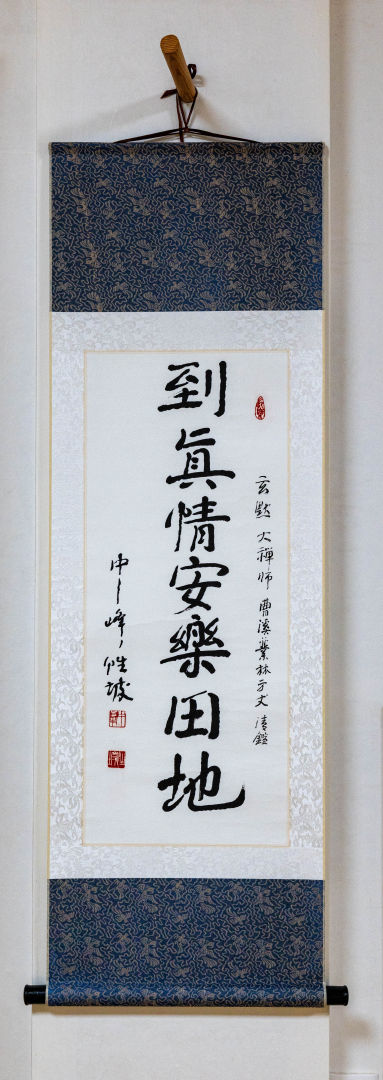 玄默 大禪师 曹溪叢林方丈 清鑑
到真情安樂田地
中峰 性坡